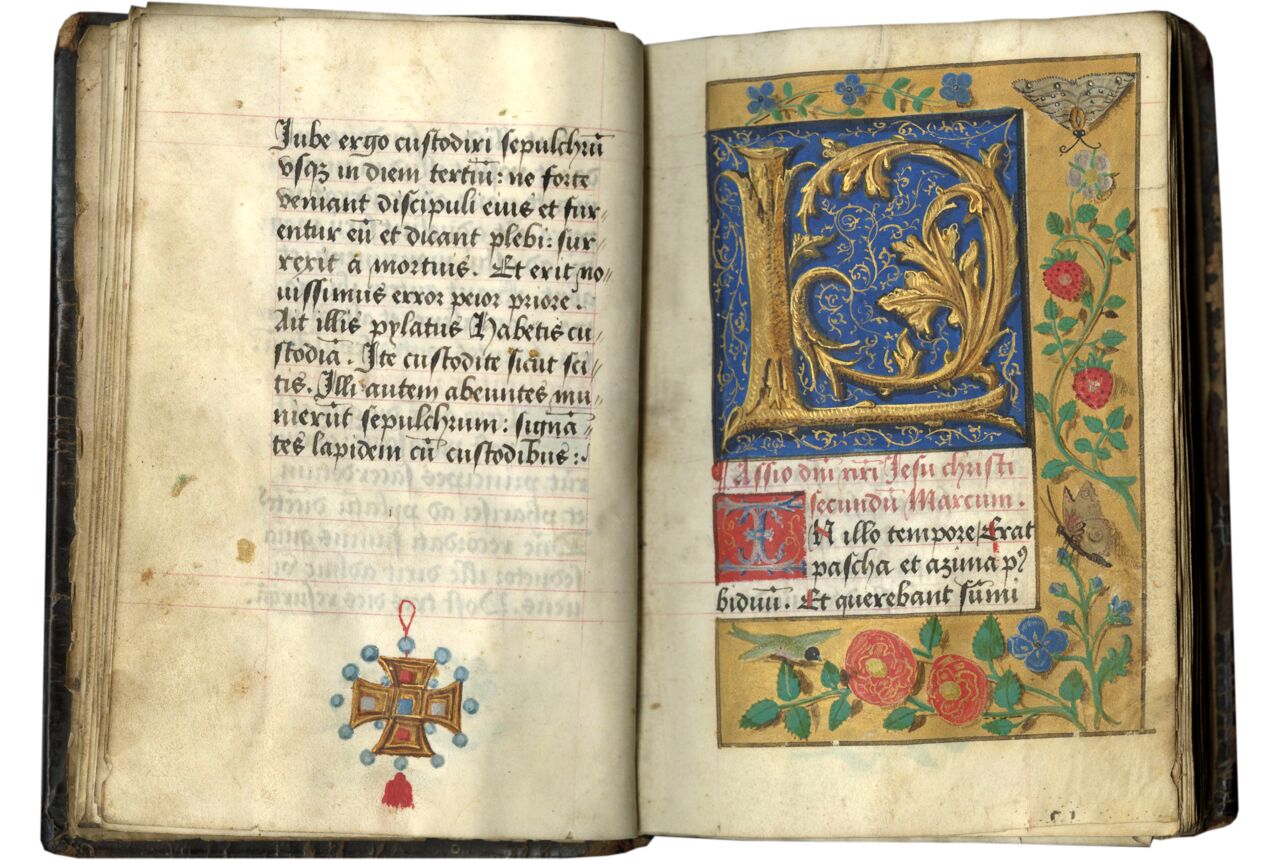 Jube ergo custodiri sepulchrū
vsqȝ in diem tertiū: ne forte
veniant discipuli eius et fur⸗
entur eū et dicant plebi: sur⸗
rexit a mortuis. Et erit no⸗
uissimus error peior priore.
Ait illis pylatus Habetis cu⸗
stodiā. Ite custodite sicut sci⸗
tis. Illi autem abeuntes mu⸗
nierūt sepulchrum: signā⸗
tes lapidem cū custodibus:.
Passio dn̄i nr̄i Jesu christi
secundū Marcum.
IN illo tempore Erat
pascha et azima pꝰ
biduū. Et querebant sūmi